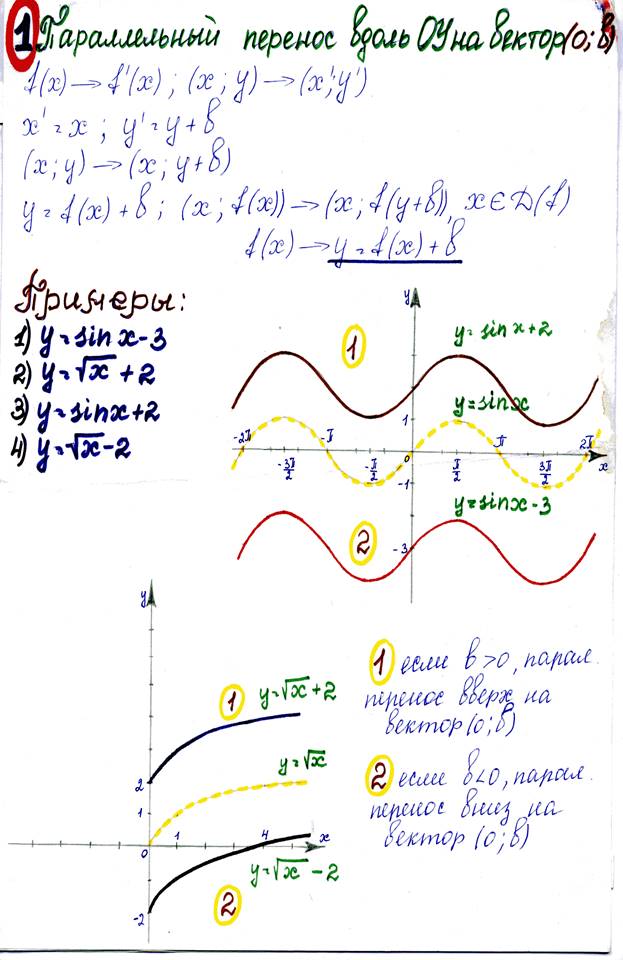 1 Параллельный перенос вдоль ОУ на вектор (0; в)
f(x) → f'(x) ; (x ; y) → (x'; y')
x' = x ; y' = y + в
(x ; y) → (x ; y + в)
y = f(x) + в ; (x ; f(x)) → (x ; f(y + в)), x ∈ D(f)
f(x) → y = f(x) + в
Примеры:
1) y = sin x - 3
2) y = √x + 2
3) y = sin x + 2
4) y = √x - 2
y
1
y = sin x + 2
y = sin x
1
-2π -π 0 π 2π
-3π/2 -π/2 π/2 3π/2 x
-1
y = sin x - 3
2
-3
y
1 y = √x + 2
y = √x
2
1
0 1 4 x
y = √x - 2
2
-2
1 если в > 0, парал.
перенос вверх на
вектор (0 ; в)
2 если в < 0, парал.
перенос вниз на
вектор (0 ; в)